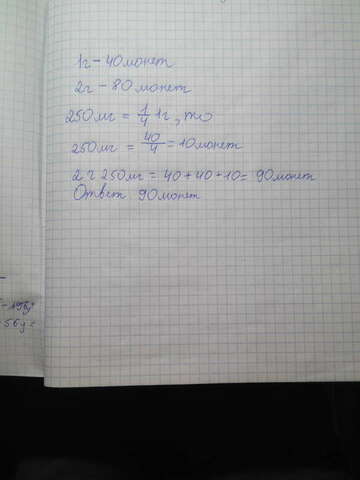 1г - 40 монет
2г - 80 монет
250 мг = 1/4 1г, то
250 мг = 40/4 = 10 монет
2 г 250 мг = 40 + 40 + 10 = 90 монет
Ответ 90 монет
- 56y =